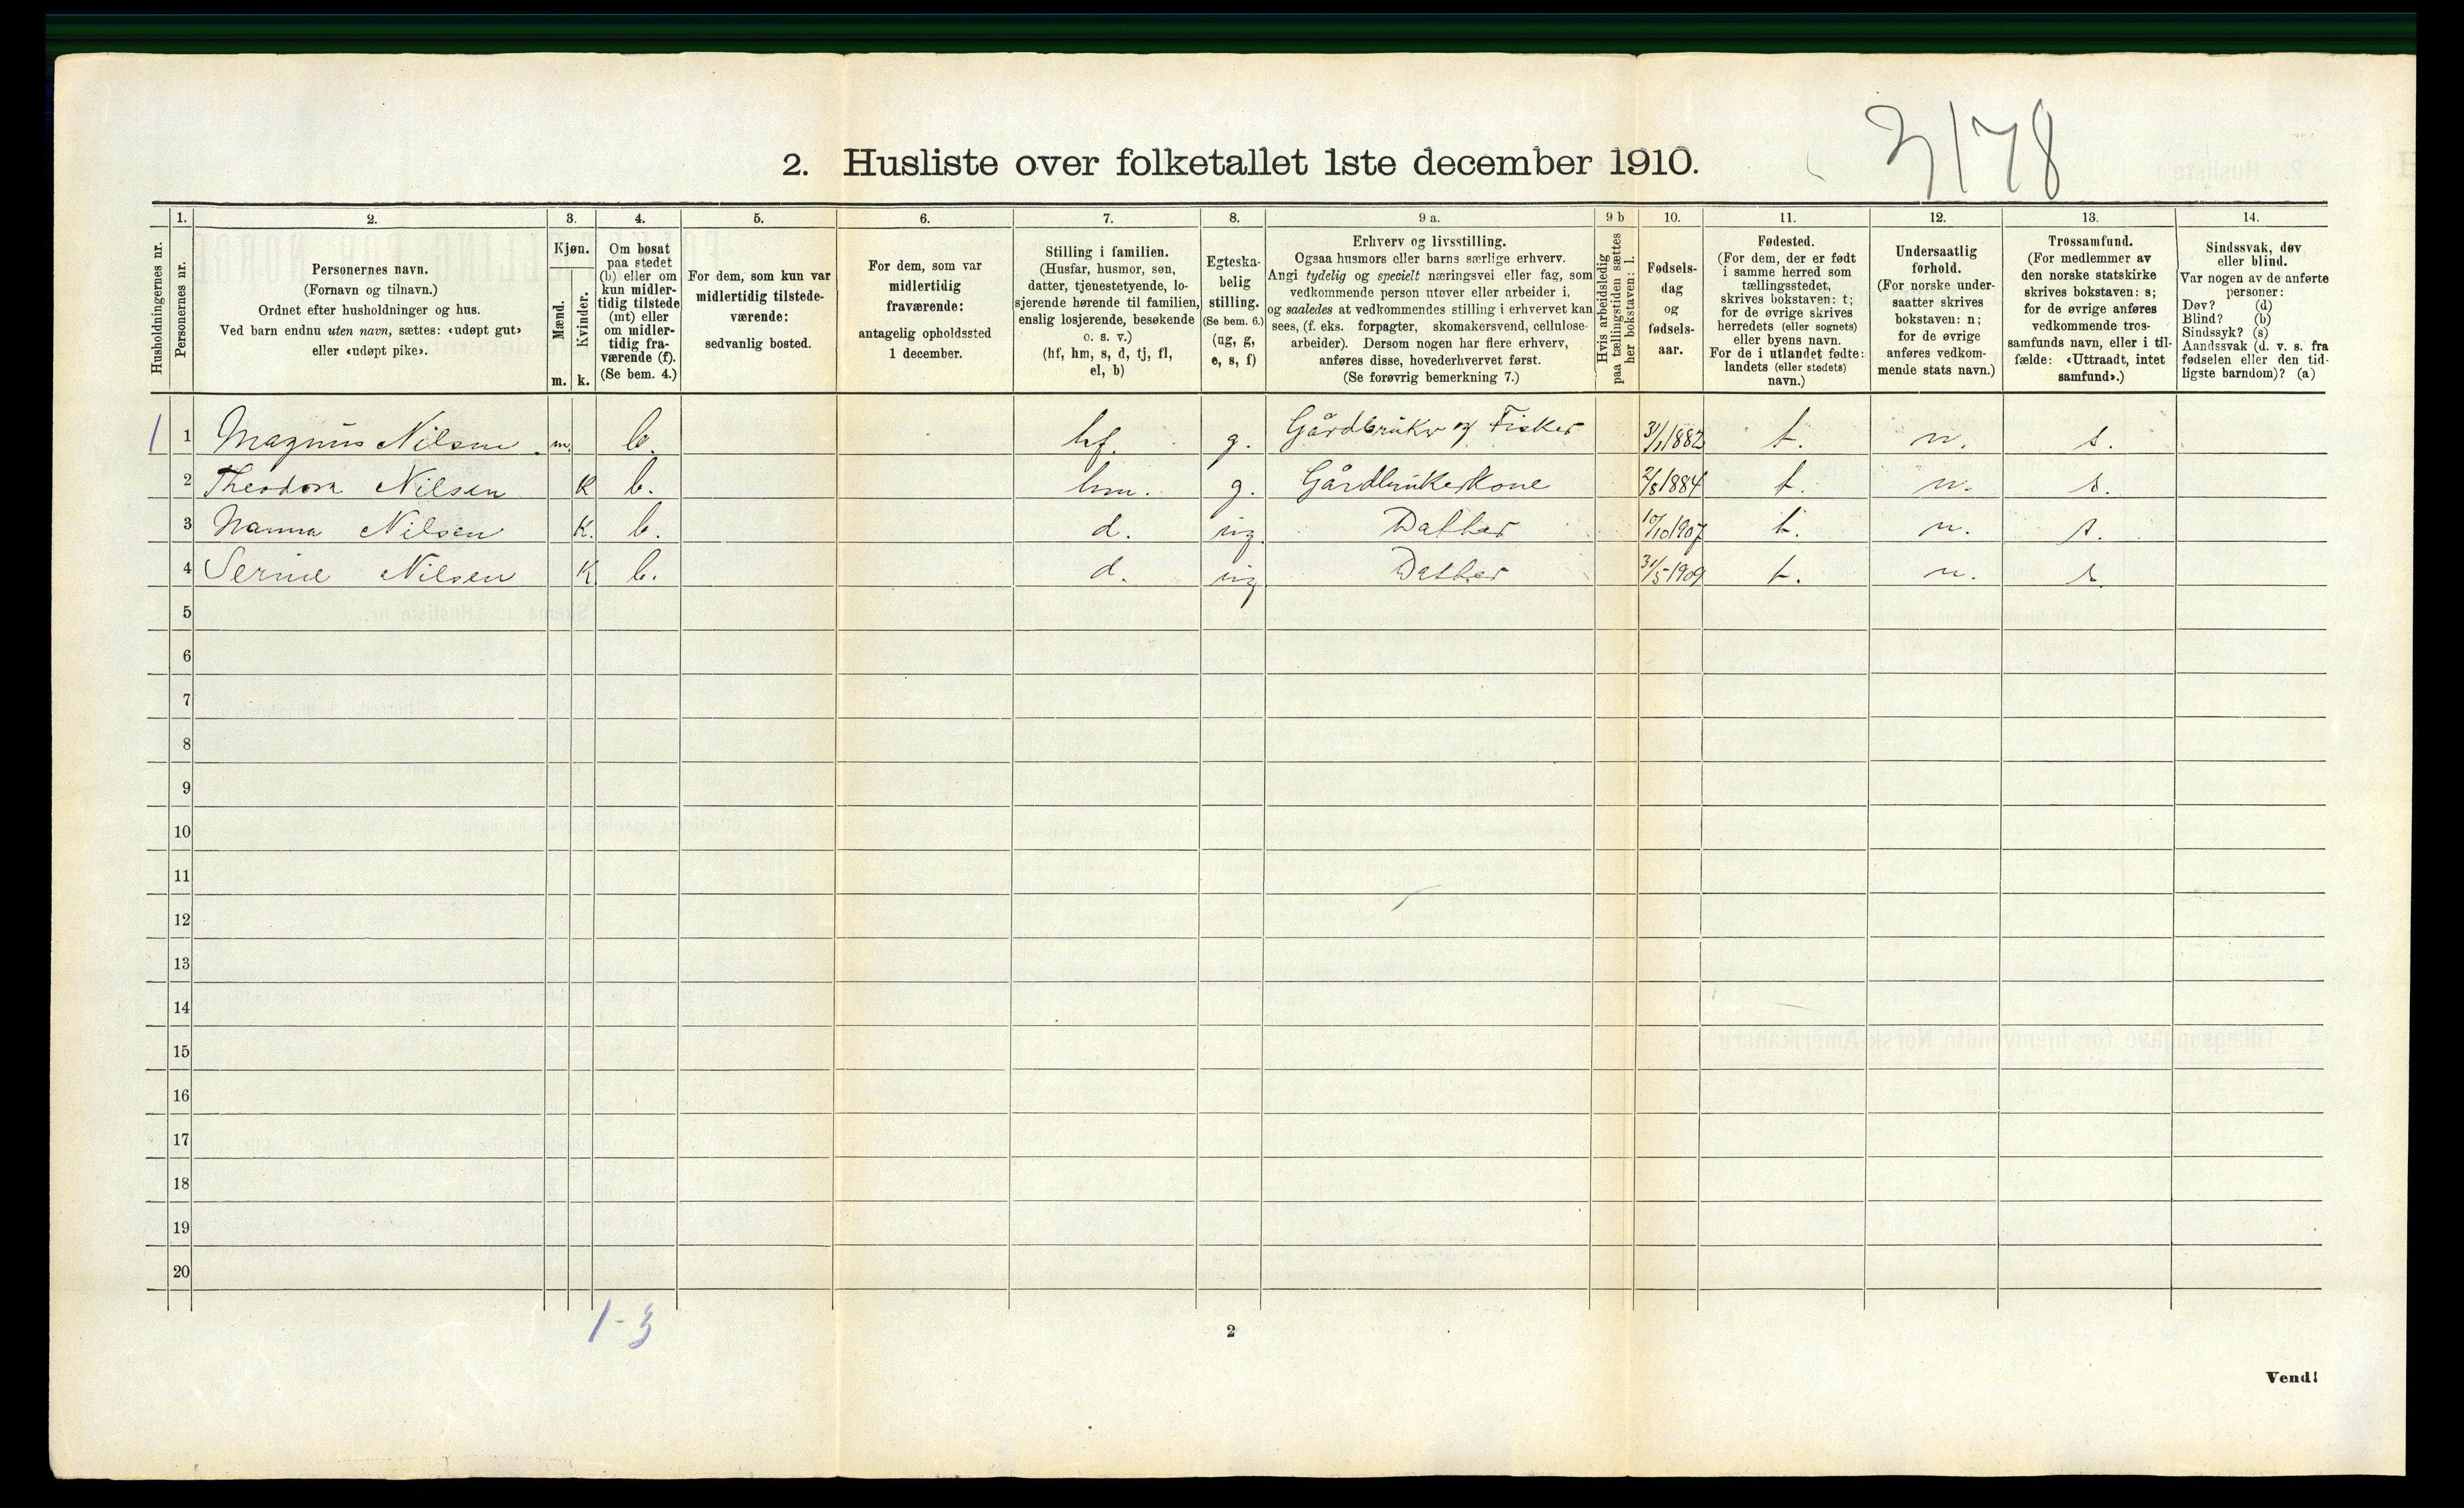 3178
2. Husliste over folketallet 1ste december 1910.
Husholdningernes nr.
1.
Personernes nr.
2.
Personernes navn.
(Fornavn og tilnavn.)
Ordnet efter husholdninger og hus.
Ved barn endnu uten navn, sættes: «udøpt gut»
eller «udøpt pike».
3.
Kjøn.
Mænd.
Kvinder.
m. k.
4.
Om bosat
paa stedet
(b) eller om
kun midler-
tidig tilstede
(mt) eller
om midler-
tidig fra-
værende (f).
(Se bem. 4.)
5.
For dem, som kun var
midlertidig tilstede-
værende:
sedvanlig bosted.
6.
For dem, som var
midlertidig
fraværende:
antagelig opholdssted
1 december.
7.
Stilling i familien.
(Husfar, husmor, søn,
datter, tjenestetyende, lo-
sjerende hørende til familien,
enslig losjerende, besøkende
o. s. v.)
(hf, hm, s, d, tj, fl,
el, b)
8.
Egteska-
belig
stilling.
(Se bem. 6.)
(ug, g,
e, s, f)
9 a.
Erhverv og livsstilling.
Ogsaa husmors eller barns særlige erhverv.
Angi tydelig og specielt næringsvei eller fag, som
vedkommende person utøver eller arbeider i,
og saaledes at vedkommendes stilling i erhvervet kan
sees, (f. eks. forpagter, skomakersvend, cellulose-
arbeider). Dersom nogen har flere erhverv,
anføres disse, hovederhvervet først.
(Se forøvrig bemerkning 7.)
9 b
Hvis arbeidsledig
paa tællingstiden sættes
her bokstaven: l.
10.
Fødsels-
dag
og
fødsels-
aar.
11.
Fødested.
(For dem, der er født
i samme herred som
tællingsstedet,
skrives bokstaven: t;
for de øvrige skrives
herredets (eller sognets)
eller byens navn.
For de i utlandet fødte:
landets (eller stedets)
navn.)
12.
Undersaatlig
forhold.
(For norske under-
saatter skrives
bokstaven: n;
for de øvrige
anføres vedkom-
mende stats navn.)
13.
Trossamfund.
(For medlemmer av
den norske statskirke
skrives bokstaven: s;
for de øvrige anføres
vedkommende tros-
samfunds navn, eller i til-
fælde: «Uttraadt, intet
samfund».)
14.
Sindssvak, døv
eller blind.
Var nogen av de anførte
personer:
Døv? (d)
Blind? (b)
Sindssyk? (s)
Aandssvak (d. v. s. fra
fødselen eller den tid-
ligste barndom)? (a)
1 1 Magnus Nilsen . m. b. hf. g. Gårdbruker og Fisker 31/1 1882 t. n. s.
2 Theodora Nilsen K b. hm. g. Gårdbrukerkone 2/8 1884 t. n. s.
3 Nanna Nilsen K. b. d. ug. Datter 10/10 1907 t. n. s.
4 Serine Nilsen K b. d. ug Datter 31/5 1909 t. n. s.
5
6
7
8
9
10
11
12
13
14
15
16
17
18
19
20
1-3
2
Vend!